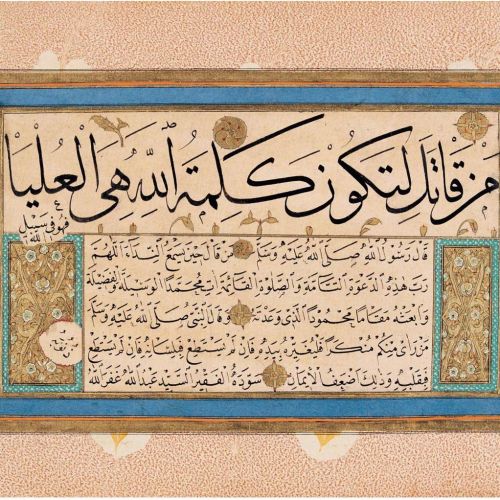 من قاتل لتكون كلمة الله هي العليا
فهو في سبيل
الله
قال رسول الله صلى الله عليه وسلم من قال حين يسمع النداء اللهم
رب هذه الدعوة التامة والصلوة القائمة آت محمدا الوسيلة والفضيلة
وابعثه مقاما محمودا الذي وعدته وقال النبي صلى الله عليه وسلم
من رأى منكم منكرا فليغيره بيده فان لم يستطع فبلسانه فان لم يستطع
فبقلبه وذلك اضعف الايمان سوده الفقير السيد عبد الله غفر الله